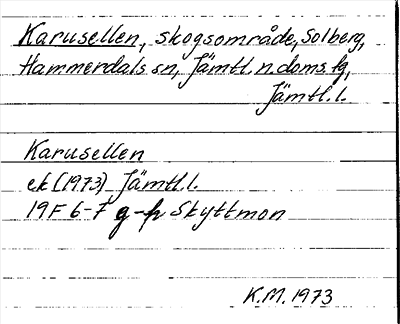 Karusellen, skogsområde, Solberg,
Hammerdals sn, Jämtl. n. doms. fg,
Jämtl. l.
Karusellen
ek (1973) Jämtl. l.
19F 6-7 g-h Skyttmon
K.M. 1973